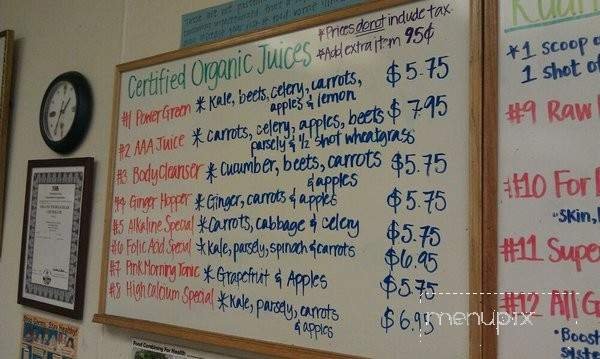 *Prices do not include tax.
*Add extra item 95¢
Certified Organic Juices
#1 Power Green * Kale, beets, celery, carrots, apples & lemon $5.75
#2 AAA Juice * Carrots, celery, apples, beets parsely & ½ shot wheatgrass $7.95
#3 Body Cleanser * Cucumber, beets, carrots & apples $5.75
#4 Ginger Hopper * Ginger, carrots & apples $5.75
#5 Alkaline Special * Carrots, cabbage & celery $5.75
#6 Folic Acid Special * Kale, parsely, spinach & carrots $6.95
#7 Pink Morning Tonic * Grapefruit & Apples $5.75
#8 High Calcium Special * Kale, parsely, carrots & apples $6.95
*1 scoop o
1 shot of
#9 Raw
#10 For
*Skin,
#11 Supe
#12 All G
*Boost
menupix
Food Combining For Health